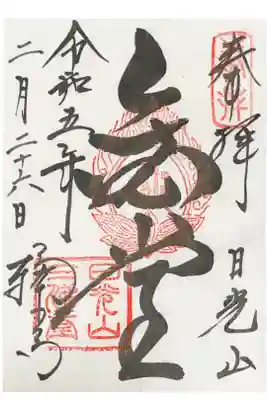 奉拝
日光山
金堂
令和五年
二月二十六日
輪王寺
日光山
三佛堂